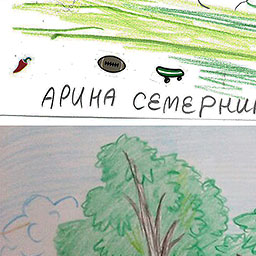 АРИНА СЕМЕРНИ